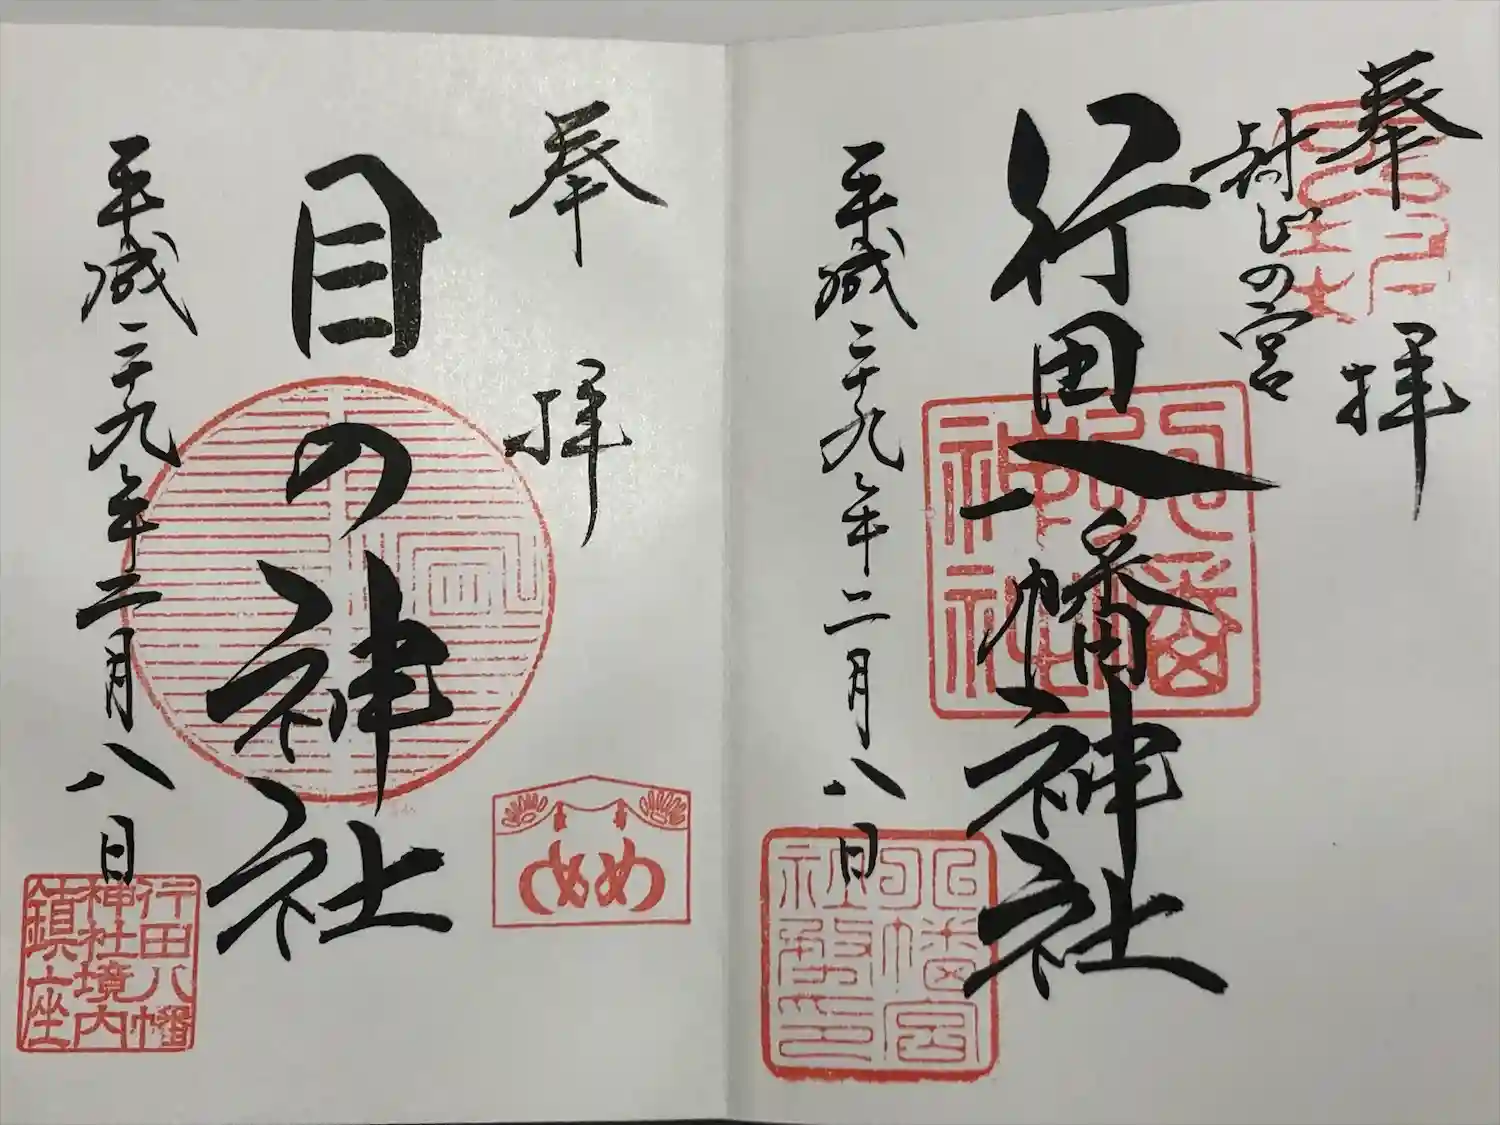 奉拝
封じの宮
行田八幡神社
平成二十九年二月八日
八幡神社
奉拝
目の神社
平成二十九年二月八日
めめ
行田八幡
神社境内
鎮座